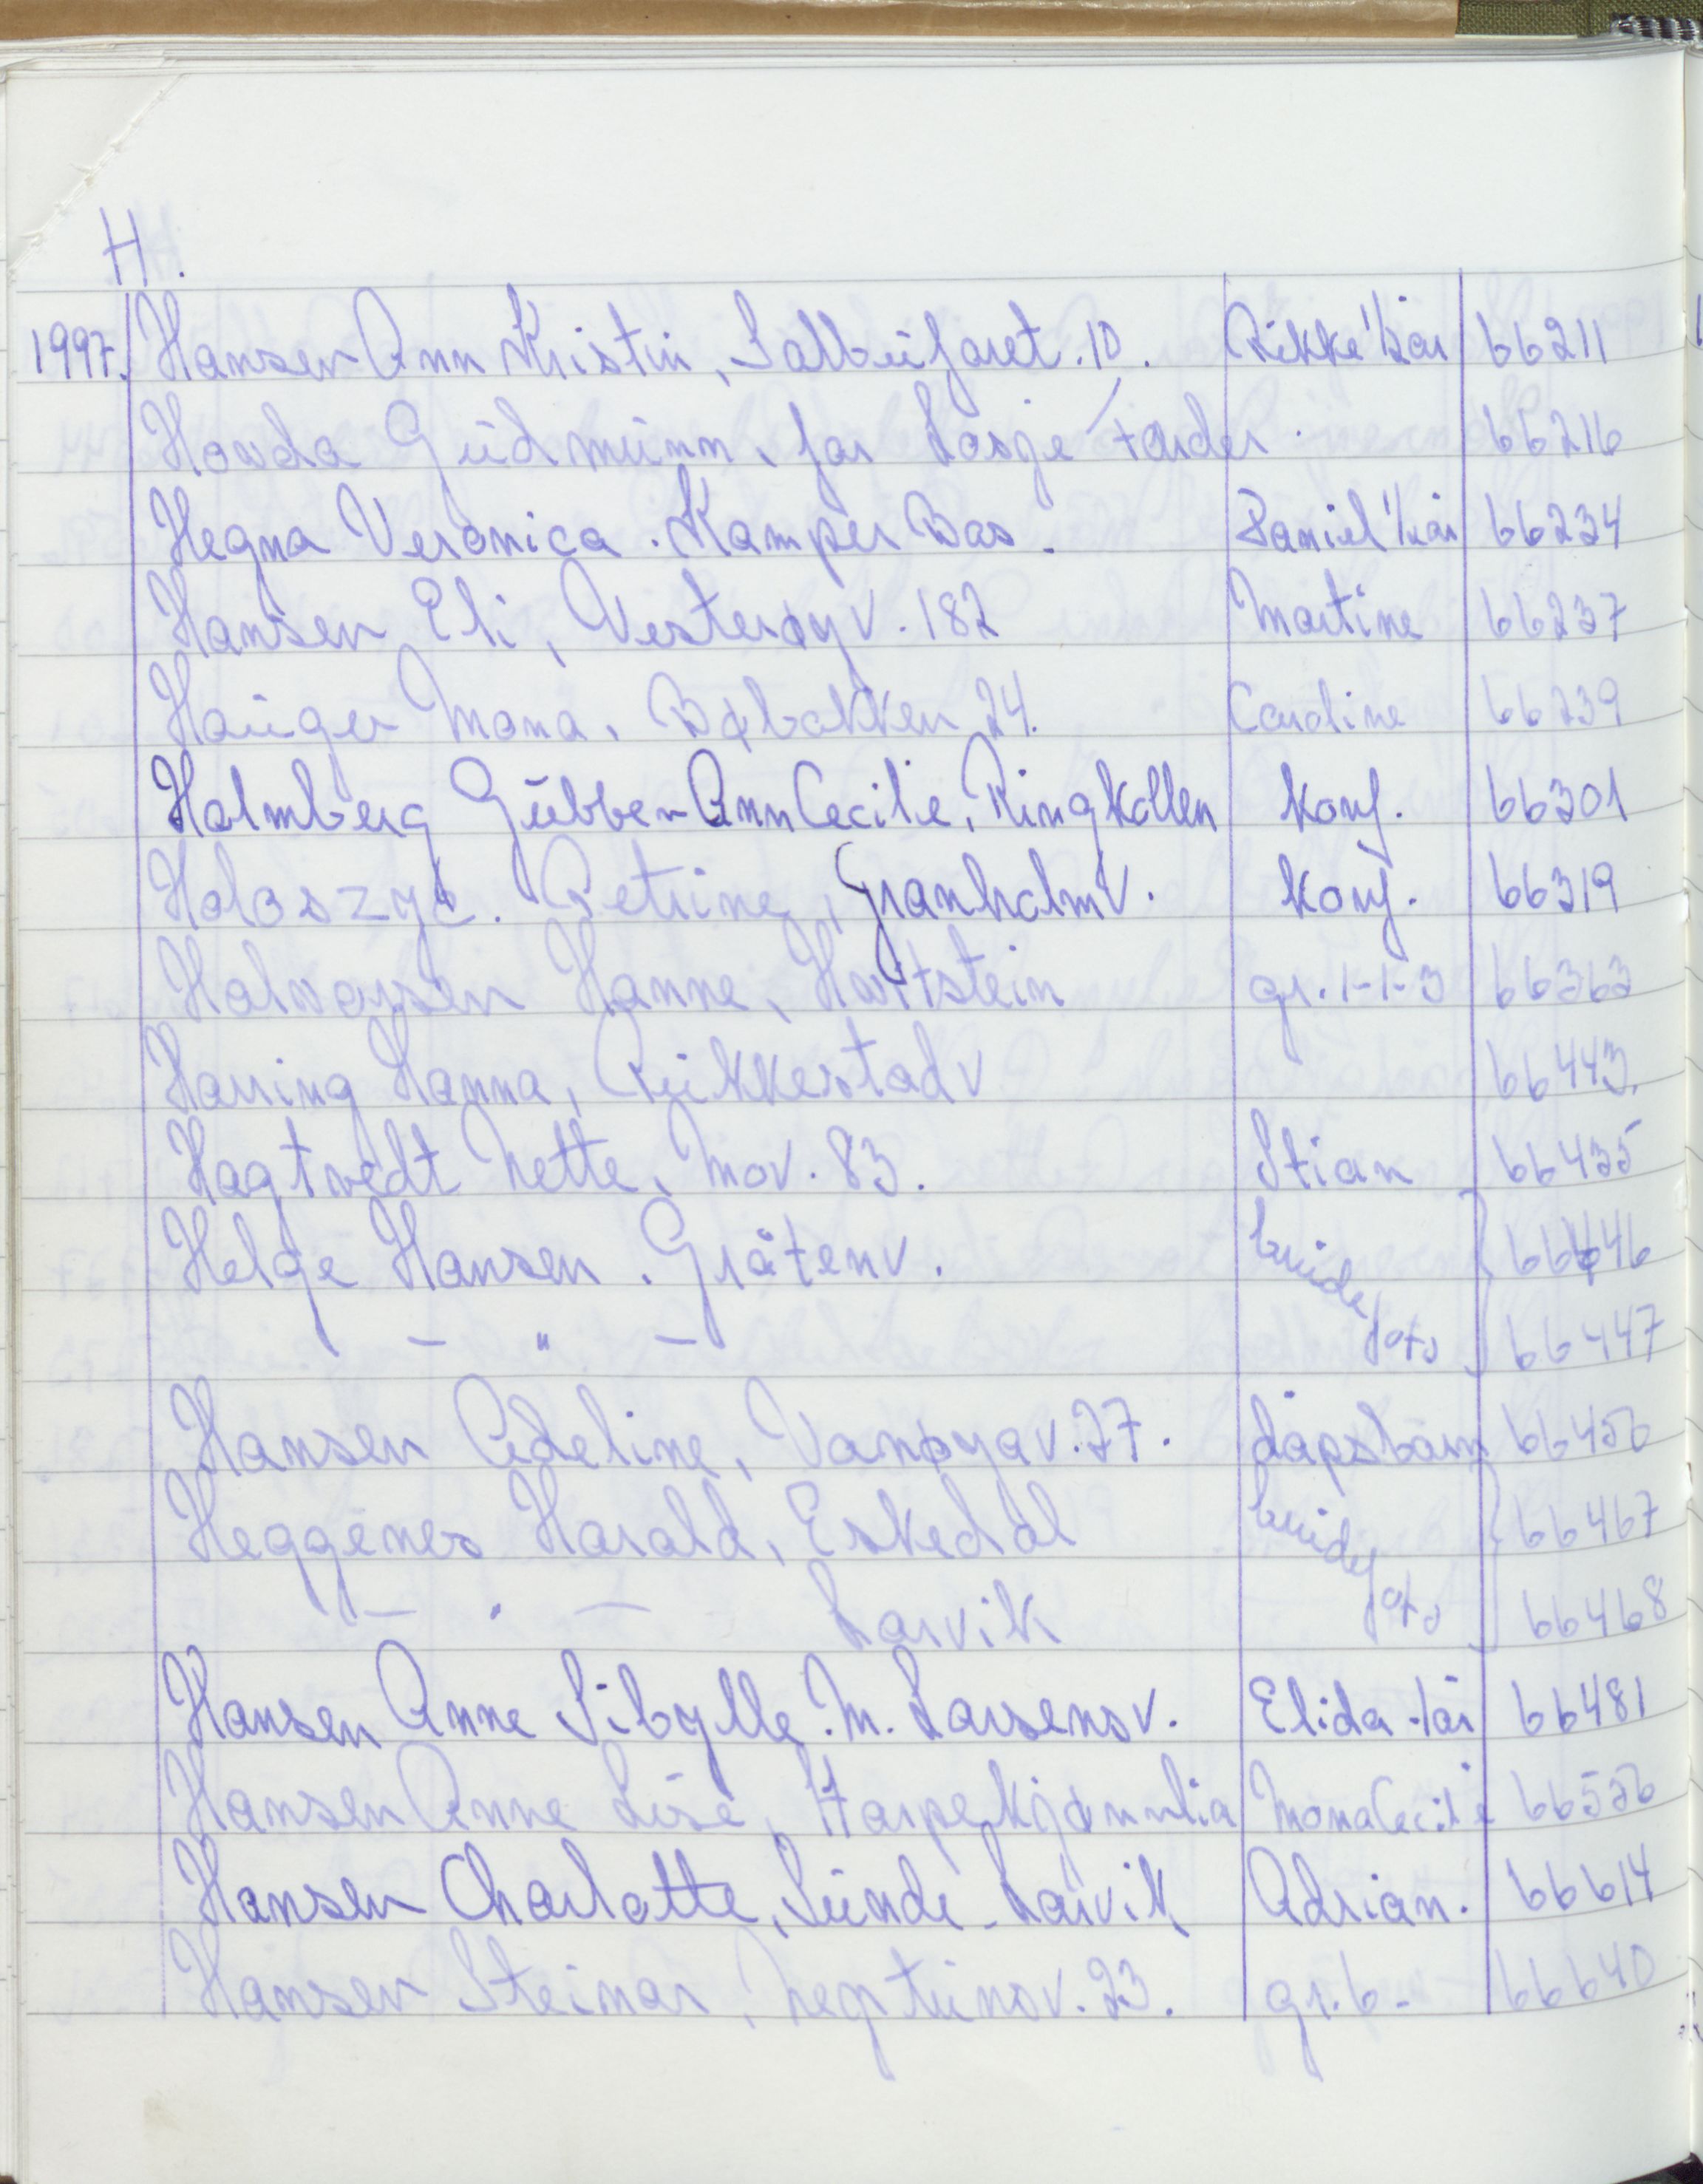 H.
1997. Hansen Ann Kristin, Salbufaret. 10. Rikke 1/2 år 66211
Hovda Gudmunn, far Losje Færder. 66216
Hegna Veronica. Kamper Bas. Daniel 1/2 år 66234
Hansen Eli, Vesterøyv. 182 Martine 66237
Hauger Mona, Bøbakken 24. Caroline 66239
Holmberg Gubber Ann Cecilie, Ringkollen konf. 66301
Holoszyc. Petrine, Granholmv. konf. 66319
Halvorsen Hanne, Hvitstein gr. 1-1-3 66363
Harring Hanna, Rukkestadv 66443.
Hagtvedt Nette, Mov. 83. Stian 66435
Helge Hansen. Gråtenv. brude 66446
— " — foto 66447
Hansen Adeline, Vanøyav. 27. dåpsbarn 66450
Heggenes Harald, Eskedal brude 66467
— " — Larvik foto 66468
Hansen Anne Sibylle. M. Larsensv. Elida 1 år 66481
Hansen Anne Lise, Harpekjønnlia Mona Cecilie 66526
Hansen Charlotte, Sunde Larvik Adrian. 66614
Hansen Steinar, Neptunsv. 23. gr. 6- 66640